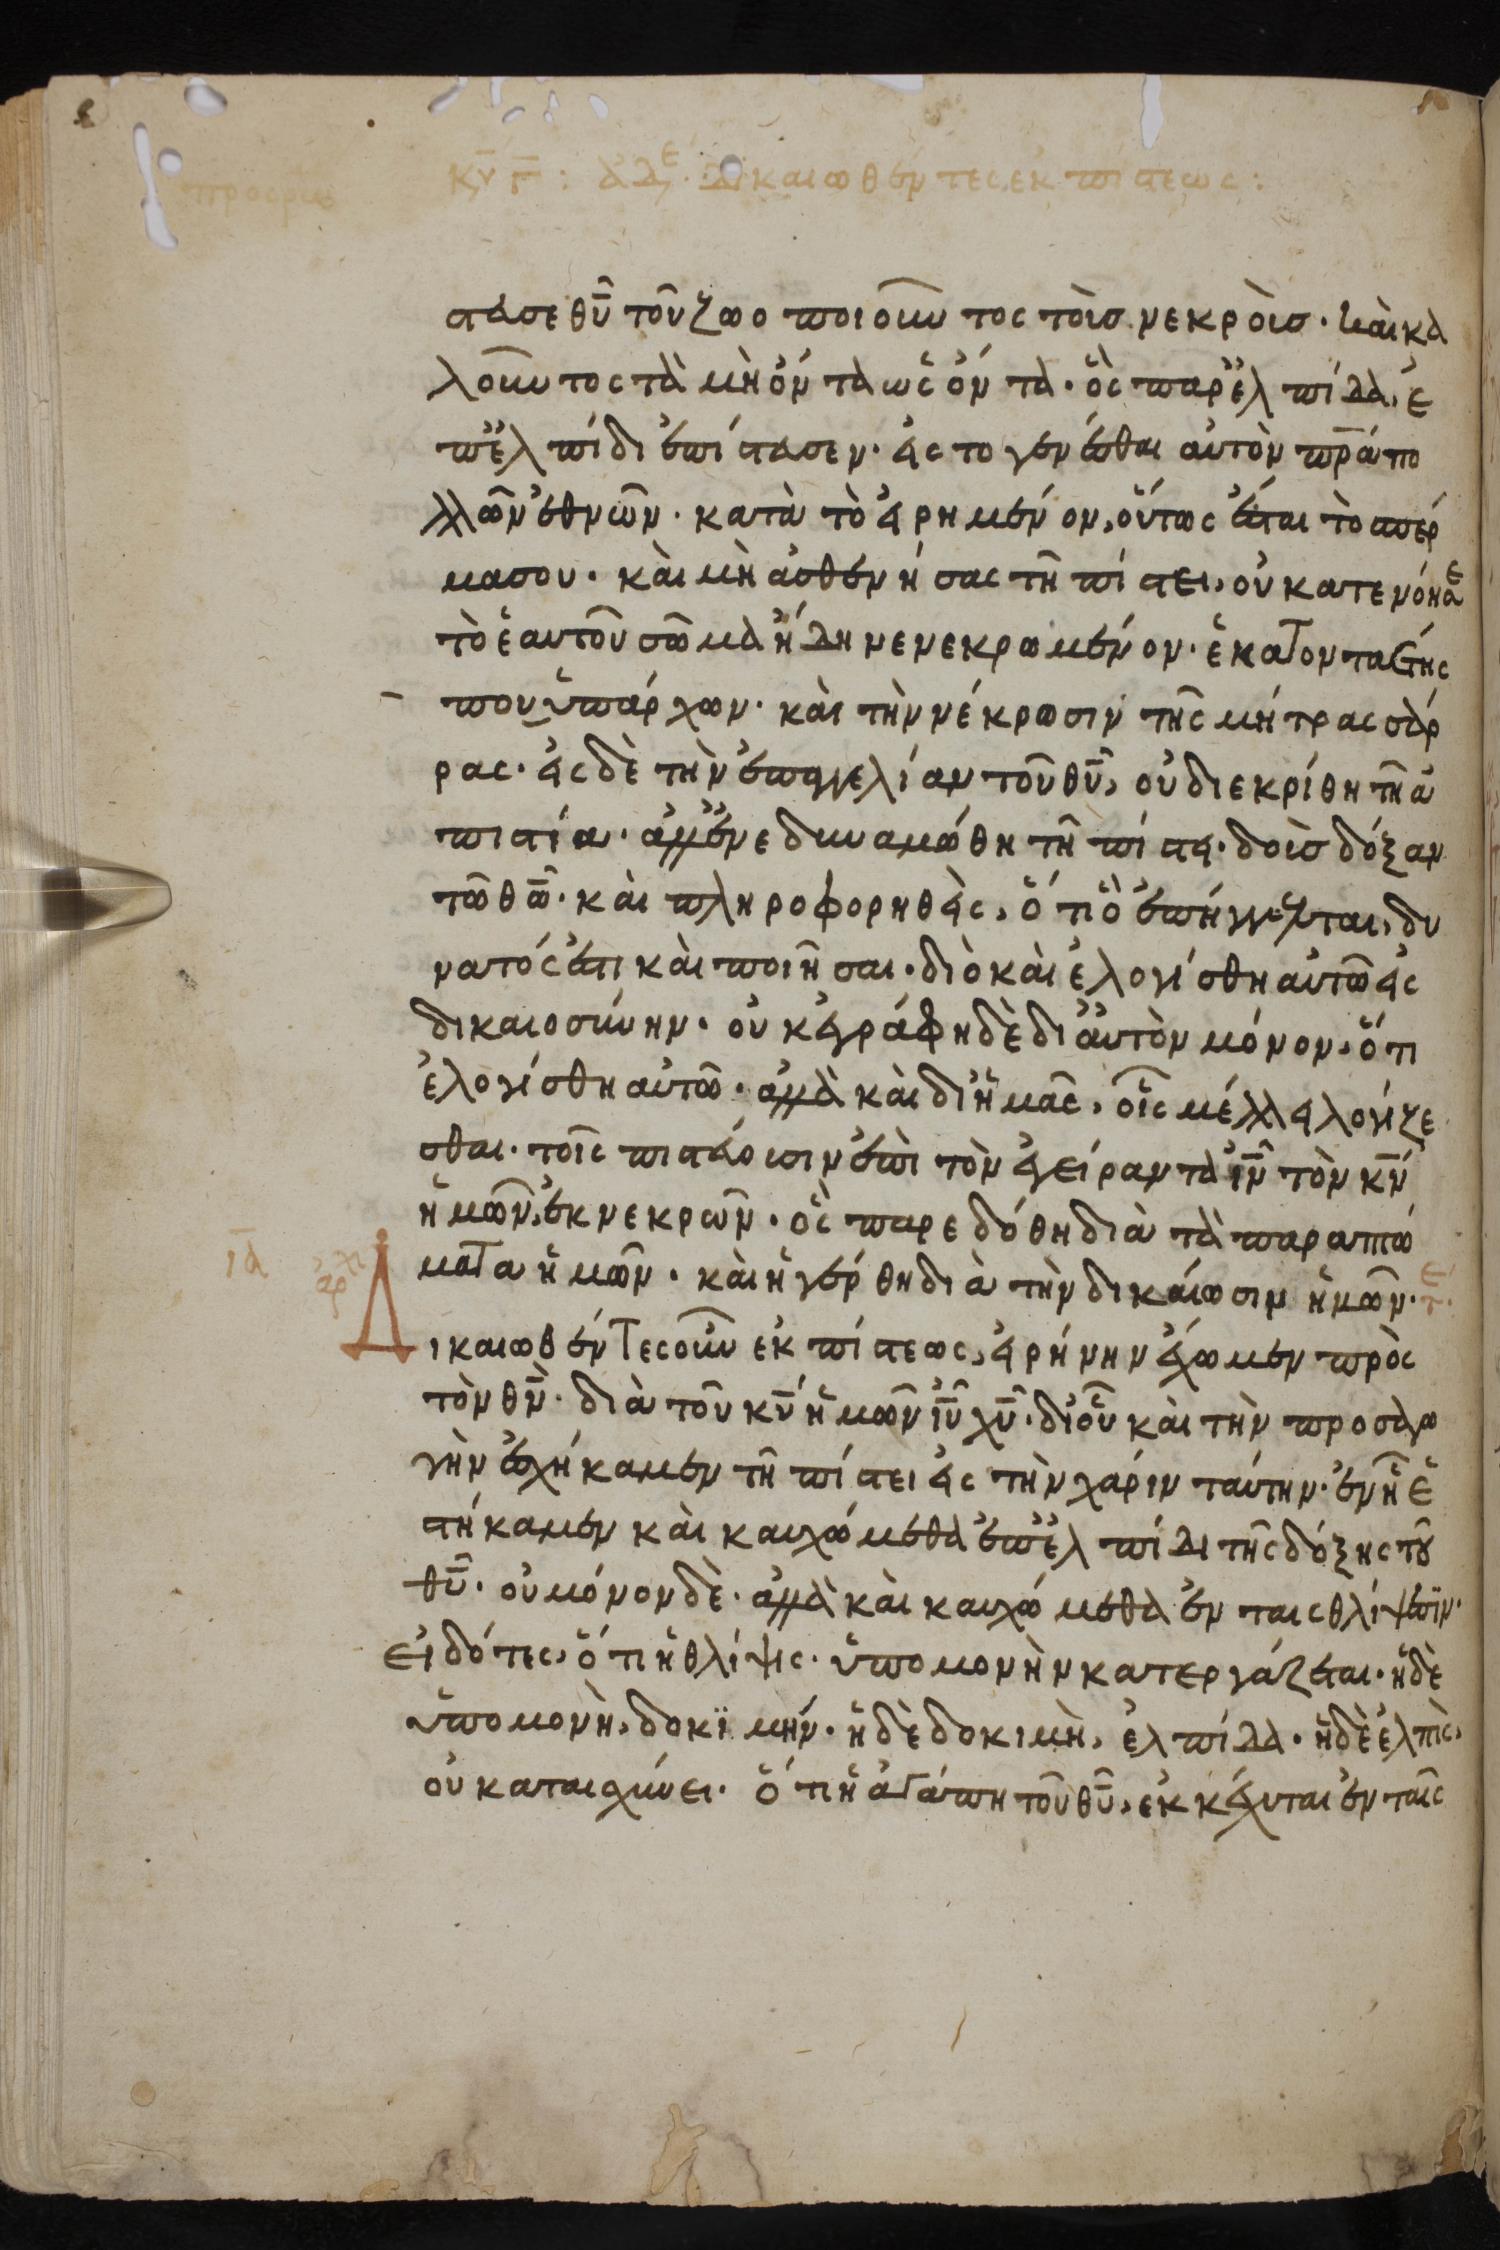 προς ρω
κυ γ: ἀδε. Δικαιωθέντες ἐκ πίστεως:
στευσε θῦ τοῦ ζωοποιοῦντος τοὺσ νεκροὺσ. καὶ κα
λοῦντος τὰ μὴ ὄντα ὡς ὄντα. ὃς παρ' ἐλπίδα, ἐ
π' ἐλπίδι ἐπίστευσεν. εἰς το γενέσθαι αὐτὸν πρα πο
λλῶν ἐθνῶν. κατὰ τὸ εἰρημένον, οὕτως ἔσται τὸ σπέρ
μα σου. καὶ μὴ ἀσθενήσας τῆ πίστει, οὐ κατενόησε
τὸ ἑαυτοῦ σῶμα ἤδη νενεκρωμένον. ἑκατονταετής
που ὑπάρχων. καὶ τὴν νέκρωσιν τῆς μήτρας σάρ
ρας. εἰς δὲ τὴν ἐπαγγελίαν τοῦ θῦ, οὐ διεκρίθη τῆ ἀ
πιστία. ἀλλ' ἐνεδυναμώθη τῆ πίστει. δοὺσ δόξαν
τῶ θῶ. καὶ πληροφορηθεὶς, ὅτι ὃ ἐπήγγελται, δυ
νατός ἐστι καὶ ποιῆσαι. διὸ καὶ ἐλογίσθη αὐτῶ εἰς
δικαιοσύνην. οὐκ ἐγράφη δὲ δι' αὐτὸν μόνον, ὅτι
ἐλογίσθη αὐτῶ. ἀλλὰ καὶ δι' ἡμᾶς, οἷς μέλλει λογίζε
σθαι. τοῖς πιστεύουσιν ἐπὶ τὸν ἐγείραντα ἰν τὸν κν
ἡμῶν, ἐκ νεκρῶν. ὃς παρεδόθη διὰ τὰ παραπτώ
ματα ἡμῶν. καὶ ἠγέρθη διὰ τὴν δικαίωσιν ἡμῶν. τε
ια αρχ Δικαιωθέντες οὖν ἐκ πίστεως, εἰρήνην ἔχωμεν πρὸς
τὸν θν. διὰ τοῦ κυ ἡμῶν ιυ χυ. δι' οὗ καὶ τὴν προσαγω
γὴν ἐσχήκαμεν τῆ πίστει εἰς τὴν χάριν ταύτην. ἐν ἧ ἑ
στήκαμεν καὶ καυχώμεθα ἐπ' ἐλπίδι τῆς δόξης τοῦ
θῦ. οὐ μόνον δὲ. ἀλλὰ καὶ καυχώμεθα ἐν ταις θλίψεσιν.
εἰδότες, ὅτι ἡ θλίψις. ὑπομονὴν κατεργάζεται. ἡ δὲ
ὑπομονὴ, δοκιμήν. ἡ δὲ δοκιμὴ, ἐλπίδα. ἡ δὲ ἐλπὶς,
οὐ καταισχύνει. ὅτι ἡ ἀγάπη τοῦ θῦ, ἐκκέχυται ἐν ταῖς